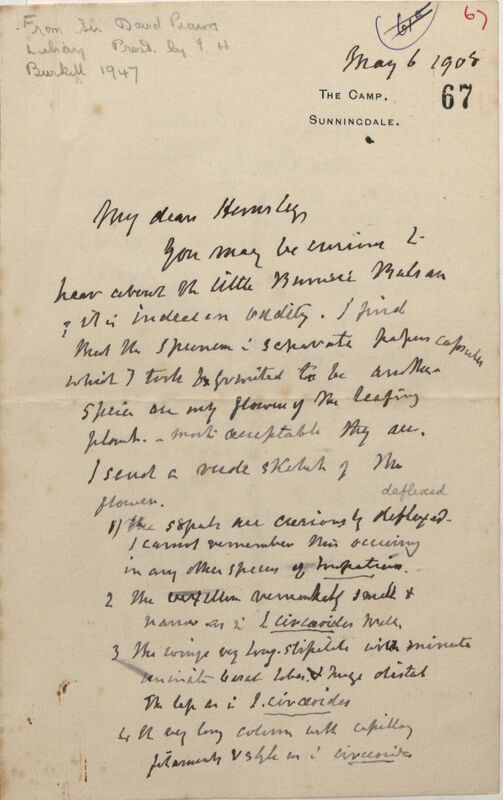 From Sir David Prain's
Library Presd. by I. H.
Burkill 1947
61a
67
May 6 1908
67
The Camp.
Sunningdale.
My dear Hemsley
You may be curious to
hear about the little Burmese Balsam
it is indeed an oddity. I find
that the specimens in separate paper capsules
which I took for granted to be another
species are only flowers of the leafing
plant. – most acceptable they are.
I send a rude sketch of the
flower.
deflexed
1) The sepals are curiously deflexed.
I cannot remember this occurring
in any other species of Impatiens.
2 The vexillum remarkably small &
narrow as in I. circæoides
3 The wings very long. stipitate with minute
uncinate basal lobes & huge distal
The lip as in I. circæoides
4 The very long column with capillary
filaments & style as in circæoides